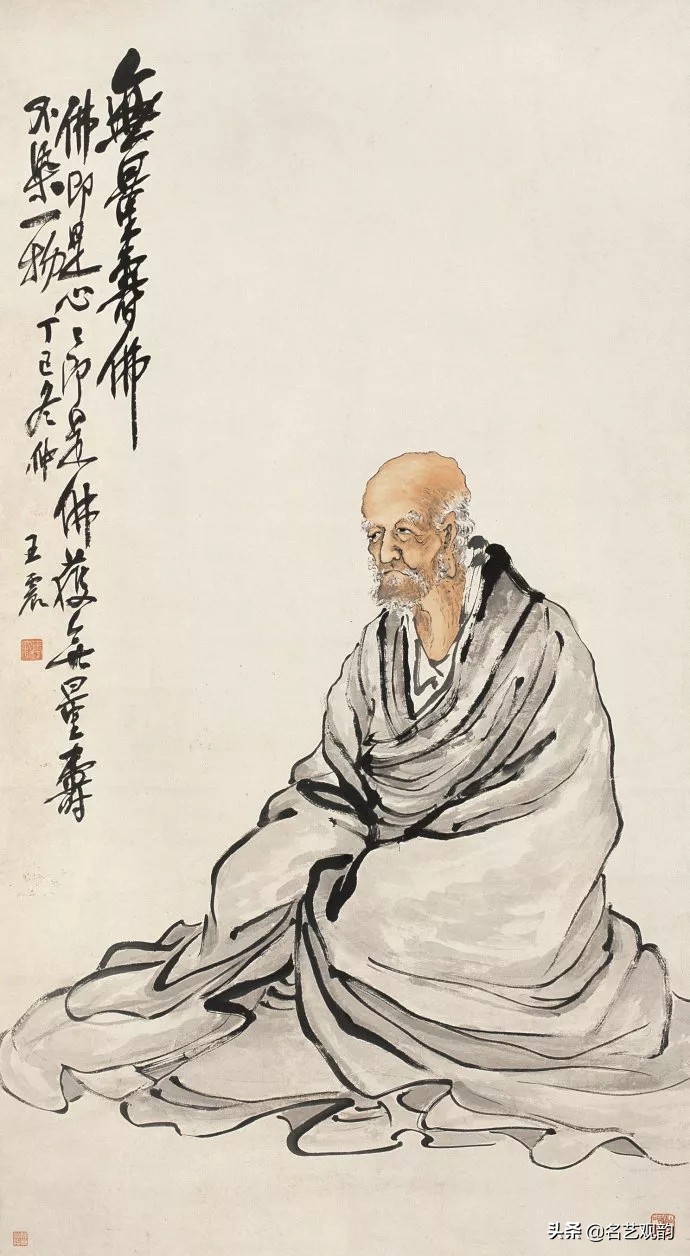 無量壽佛
佛即是心心即是佛獲無量壽
不染一物丁巳冬仲
王震
头条 @名艺观韵